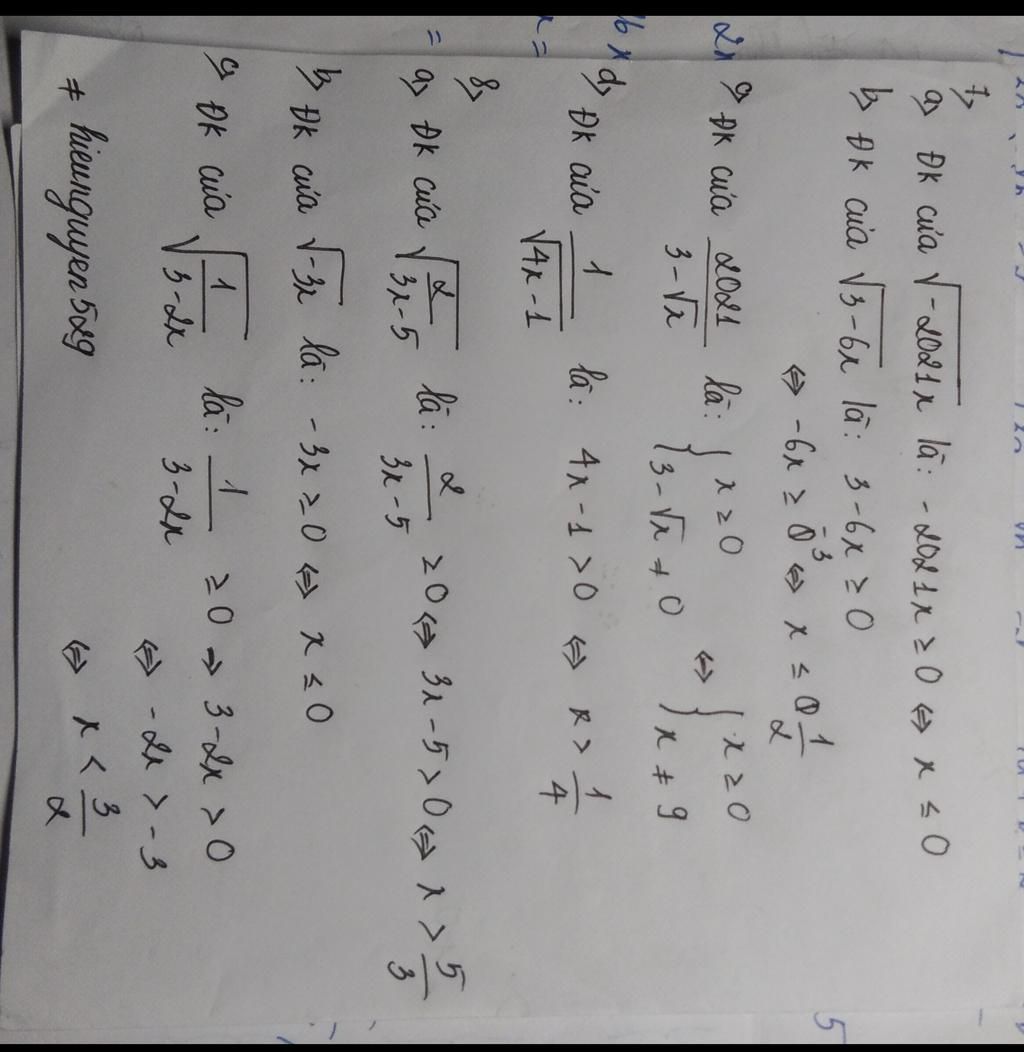 7,
a, ĐK của √(-2021x) là: -2021x ≥ 0 ⇔ x ≤ 0
b, ĐK của √(3-6x) là: 3-6x ≥ 0
⇔ -6x ≥ -3 ⇔ x ≤ 1/2
c, ĐK của 2021/(3-√x) là: { x ≥ 0 / 3-√x ≠ 0 ⇔ { x ≥ 0 / x ≠ 9
d, ĐK của 1/√(4x-1) là: 4x-1 > 0 ⇔ x > 1/4
8,
a, ĐK của √(2/(3x-5)) là: 2/(3x-5) ≥ 0 ⇔ 3x-5 > 0 ⇔ x > 5/3
b, ĐK của √(-3x) là: -3x ≥ 0 ⇔ x ≤ 0
c, ĐK của √(1/(3-2x)) là: 1/(3-2x) ≥ 0 → 3-2x > 0
⇔ -2x > -3
≠ hieunguyen529 ⇔ x < 3/2